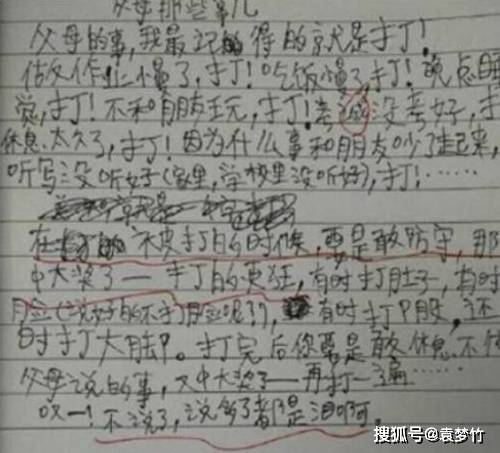 父母那些事儿
父母的事，我最记得的就是打！
做作业慢了，打！吃饭慢了，打！晚点睡
觉，打！不和朋友玩，打！考试没考好，打
休息太久了，打！因为什么事和朋友吵了起来，
听写没听好（家里，学校里没听好），打！……
在被打的时候，要是敢防守，那
中大奖了——打的更狂，有时打肚子，有时
脸（说好的不打脸呢？），有时打P股，还
时打大腿。打完后你要是敢休息，不
父母说的事，又中大奖了——再打一遍……
哎！不说了，说多了都是泪啊。
搜狐号@袁梦竹